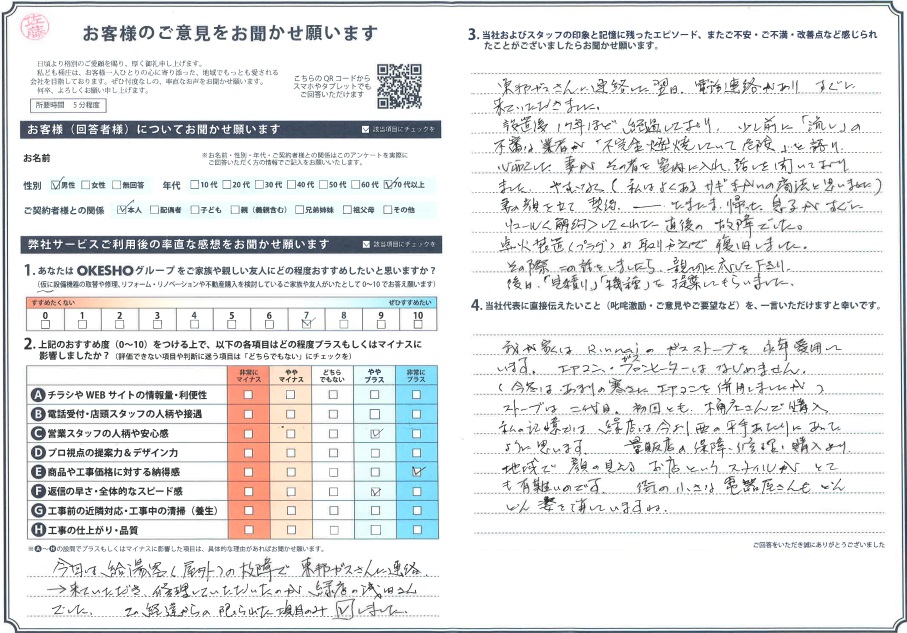 佐藤
お客様のご意見をお聞かせ願います
日頃より格別のご愛顧を賜り、厚く御礼申し上げます。
私ども桶庄は、お客様一人ひとりの心に寄り添った、地域でもっとも愛される
会社を目指しております。ぜひ忖度なしの、率直なお声をお聞かせ願います。
何卒、よろしくお願い申し上げます。
所要時間 5分程度
こちらのQRコードから
スマホやタブレットでも
ご回答いただけます
お客様（回答者様）についてお聞かせ願います
該当項目にチェックを
お名前
※お名前・性別・年代・ご契約者様との関係はこのアンケートを実際に
ご回答いただく方の情報でご記入をお願いいたします。
性別 男性 女性 無回答 年代 10代 20代 30代 40代 50代 60代 70代以上
ご契約者様との関係 本人 配偶者 子ども 親（義親含む） 兄弟姉妹 祖父母 その他
弊社サービスご利用後の率直な感想をお聞かせ願います
該当項目にチェックを
1. あなたはOKESHOグループをご家族や親しい友人にどの程度おすすめしたいと思いますか？
（仮に設備機器の取替や修理、リフォーム・リノベーションや不動産購入を検討しているご家族や友人がいたとして0〜10でお答え願います）
すすめたくない ぜひすすめたい
0 1 2 3 4 5 6 7 8 9 10
2. 上記のおすすめ度（0〜10）をつける上で、以下の各項目はどの程度プラスもしくはマイナスに
影響しましたか？（評価できない項目や判断に迷う項目は「どちらでもない」にチェックを）
非常にマイナス ややマイナス どちらでもない ややプラス 非常にプラス
A チラシやWEBサイトの情報量・利便性
B 電話受付・店頭スタッフの人柄や接遇
C 営業スタッフの人柄や安心感
D プロ視点の提案力＆デザイン力
E 商品や工事価格に対する納得感
F 返信の早さ・全体的なスピード感
G 工事前の近隣対応・工事中の清掃（養生）
H 工事の仕上がり・品質
※A〜Hの設問でプラスもしくはマイナスに影響した項目は、具体的な理由があればお聞かせ願います。
今回は、給湯器（屋外）の故障で東邦ガスさんに連絡
→来ていただき、修理していただいたのが緑店の浅田さん
でした。この経過からの限られた項目のみ☑しました。
3. 当社およびスタッフの印象と記憶に残ったエピソード、またご不安・ご不満・改善点など感じられ
たことがございましたらお聞かせ願います。
東邦ガスさんに連絡した翌日、電話連絡があり すぐに
来ていただきました。
設置後17年ほど経過しており、少し前に「流し」の
業者が「不完全燃焼していて危険」と語り、
心配した妻がその者を室内に入れ、話しを聞いており
ました。（私はよくあるサギまがいの商法と思いました）
妻の顔を立て契約。――たまたま帰った息子がすぐに
リコール（解約）してくれた直後の故障でした。
点火装置（プラグ）の取りかえで復旧しました。
その際、この話をしましたら、親切に応じて下さり、
後日、「見積り」「機種」を提案してもらいました。
4. 当社代表に直接伝えたいこと（叱咤激励・ご意見やご要望など）を、一言いただけますと幸いです。
我が家はRinnaiのガスストーブを永年愛用して
います。エアコン・ガスファンヒーターはなじめません。
（今冬はあまりの寒さにエアコンを併用しましたが）
ストーブは二代目。初回とも、桶庄さんで購入
私の記憶では、緑店は今より西の平手あたりにあった
ように思います。量販店の保障、修理・購入より、
地域で顔の見えるお店というスタイルがとて
も有難いのです。街の小さな電器店さんもどん
どん姿を消していますね。
ご回答をいただき誠にありがとうございました